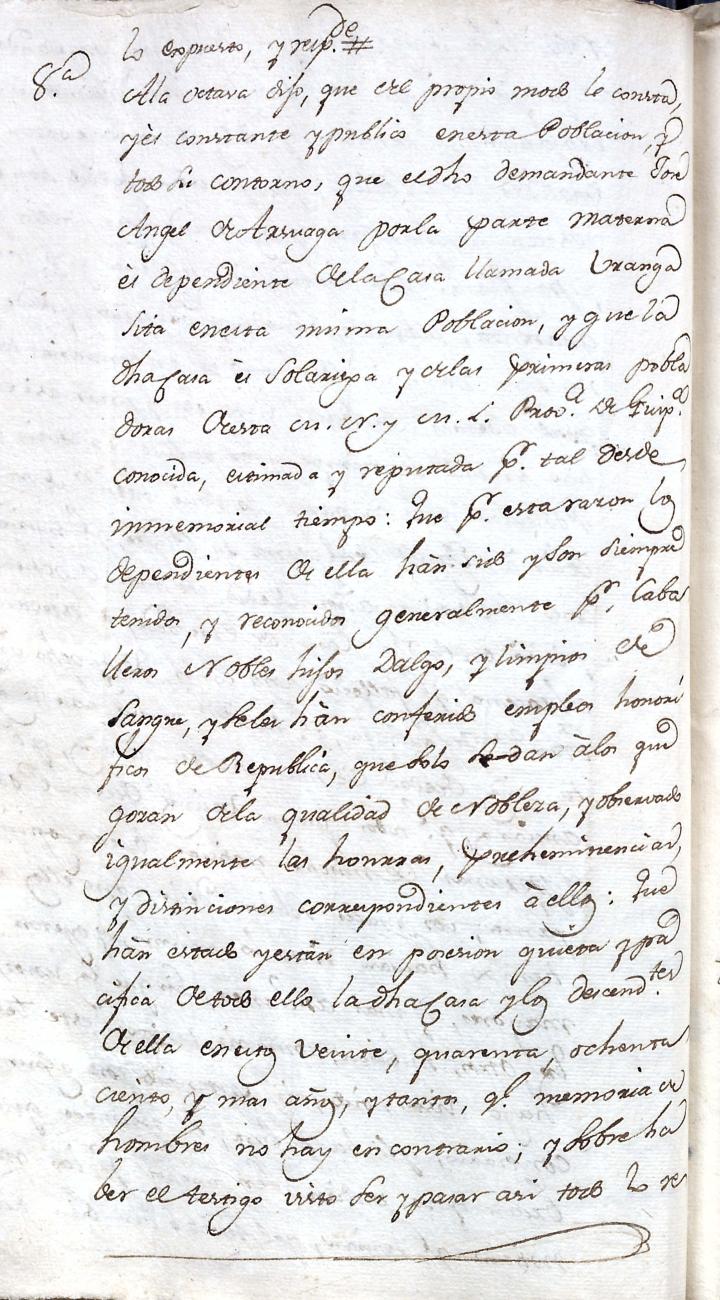 lo expuesto, y resp.de #
8.a A la octava dijo, que del propio modo le consta,
y es constante y publico en esta Poblacion, y
todo su contorno, que el dho demandante Jose
Angel de Arsuaga por la parte materna
ès dependiente de la Casa llamada Uranga
sita en esta misma Poblacion, y que la
dha Casa ès Solariega y de las primeras pobla
doras de esta M. N. y M. L. Prov.a de Guip.a
conocida, estimada y reputada p.r tal desde
inmemorial tiempo: Que p.r esta razon los
dependientes de ella hàn sido y son siempre
tenidos, y reconocidos generalmente p.r Caba
lleros Nobles hijos Dalgo, y limpios de
Sangre, y seles hàn conferido empleos honori
ficos de Republica, que solo se dan àlos que
gozan dela qualidad de Nobleza, y observado
igualmente las honrras, preheminencias,
y distinciones correspondientes à ellos: Que
hàn estado y estàn en posesion quieta y pa
cifica de todo ello la dha Casa y los descend.tes
de ella en estos veinte, quarenta, ochenta
ciento, y mas años, y tantos, q.e memoria de
hombres no hay en contrario; y sobre ha
ber el testigo visto ser y pasar asi todo lo re